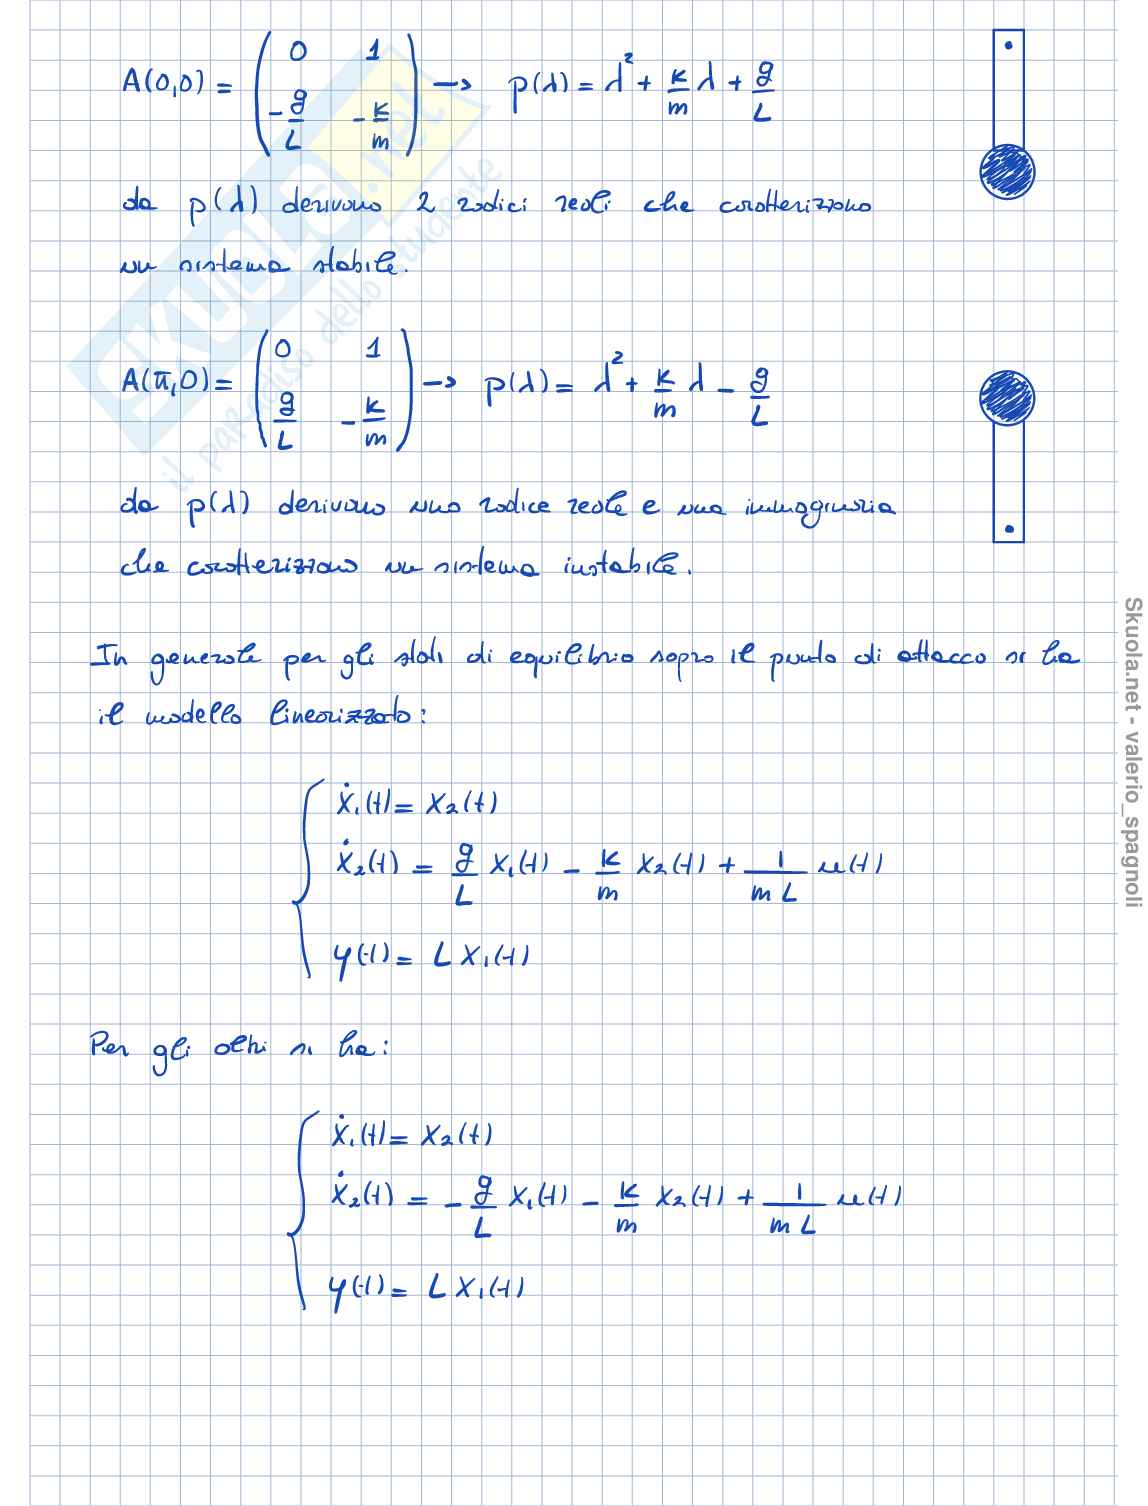 A(0,0) = ( 0 1 ; -g/L -k/m ) → p(λ) = λ² + k/m λ + g/L
da p(λ) derivano 2 radici reali che caratterizzano
un sistema stabile.
A(π,0) = ( 0 1 ; g/L -k/m ) → p(λ) = λ² + k/m λ - g/L
da p(λ) derivano una radice reale e una immaginaria
che caratterizzano un sistema instabile.
In generale per gli stati di equilibrio sopra il punto di attacco si ha
il modello linearizzato:
ẋ₁(t) = x₂(t)
ẋ₂(t) = g/L x₁(t) - k/m x₂(t) + 1/(m L) u(t)
y(t) = L x₁(t)
Per gli altri si ha:
ẋ₁(t) = x₂(t)
ẋ₂(t) = - g/L x₁(t) - k/m x₂(t) + 1/(m L) u(t)
y(t) = L x₁(t)
SKUOLA.net
il paradiso dello studente
Skuola.net - valerio_spagnoli